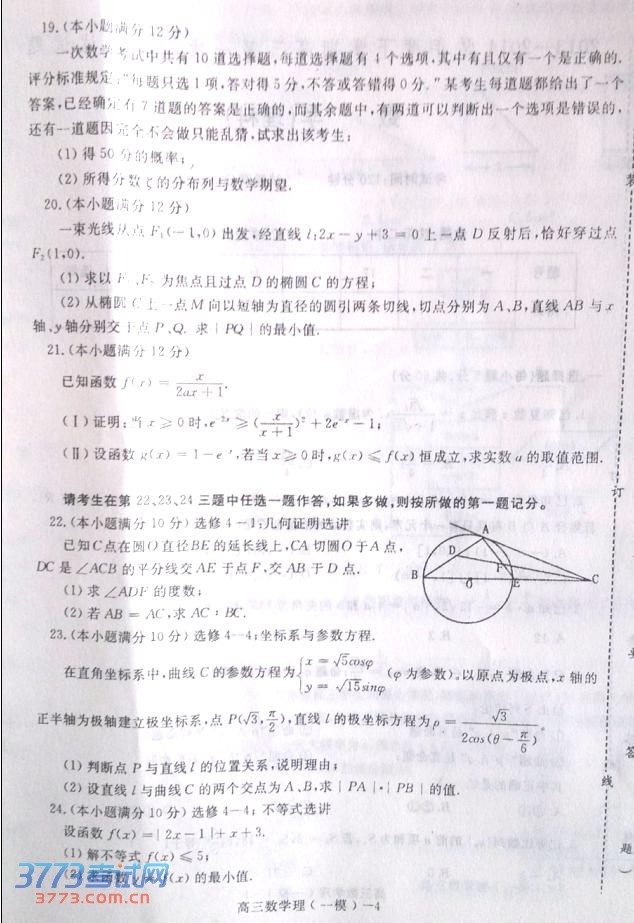 19.(本小题满分 12 分)
一次数学考试中共有 10 道选择题,每道选择题有 4 个选项,其中有且仅有一个是正确的.
评分标准规定:“每题只选 1 项,答对得 5 分,不答或答错得 0 分.”某考生每道题都给出了一个
答案,已经确定有 7 道题的答案是正确的,而其余题中,有两道可以判断出一个选项是错误的,
还有一道题因完全不会做只能乱猜,试求出该考生:
(1) 得 50 分的概率;
(2) 所得分数ξ的分布列与数学期望.
20.(本小题满分 12 分)
一束光线从点 F₁(−1,0) 出发,经直线 l:2x − y + 3 = 0 上一点 D 反射后,恰好穿过点
F₂(1,0).
(1) 求以 F₁、F₂ 为焦点且过点 D 的椭圆 C 的方程;
(2) 从椭圆 C 上一点 M 向以短轴为直径的圆引两条切线,切点分别为 A、B,直线 AB 与 x
轴、y 轴分别交于点 P、Q. 求 | PQ | 的最小值.
21.(本小题满分 12 分)
已知函数 f(x) = x/(2ax + 1).
(Ⅰ) 证明:当 x ⩾ 0 时,e⁻²ˣ ⩾ (x/(x + 1))² + 2e⁻ˣ − 1;
(Ⅱ) 设函数 g(x) = 1 − e⁻ˣ,若当 x ⩾ 0 时,g(x) ⩽ f(x) 恒成立,求实数 a 的取值范围.
请考生在第 22、23、24 三题中任选一题作答,如果多做,则按所做的第一题记分。
22.(本小题满分 10 分) 选修 4−1:几何证明选讲
已知 C 点在圆 O 直径 BE 的延长线上,CA 切圆 O 于 A 点,
DC 是 ∠ACB 的平分线交 AE 于点 F,交 AB 于 D 点.
(1) 求 ∠ADF 的度数;
(2) 若 AB = AC,求 AC : BC.
A
D
F
B
O
E
C
23.(本小题满分 10 分) 选修 4--4:坐标系与参数方程.
在直角坐标系中,曲线 C 的参数方程为{x = √5cosφ y = √15sinφ (φ 为参数)。以原点为极点,x 轴的
正半轴为极轴建立极坐标系,点 P(√3,π/2),直线 l 的极坐标方程为 ρ = √3/(2cos(θ − π/6))。
(1) 判断点 P 与直线 l 的位置关系,说明理由;
(2) 设直线 l 与曲线 C 的两个交点为 A、B,求 | PA | · | PB | 的值.
24.(本小题满分 10 分) 选修 4−4: 不等式选讲
设函数 f(x) =| 2x − 1 |+ x + 3.
(1) 解不等式 f(x) ⩽ 5;
(2) 求函数 y = f(x) 的最小值.
高三数学理(一模) −4
3773考试网
3773.com.cn
装
订
线
答
题